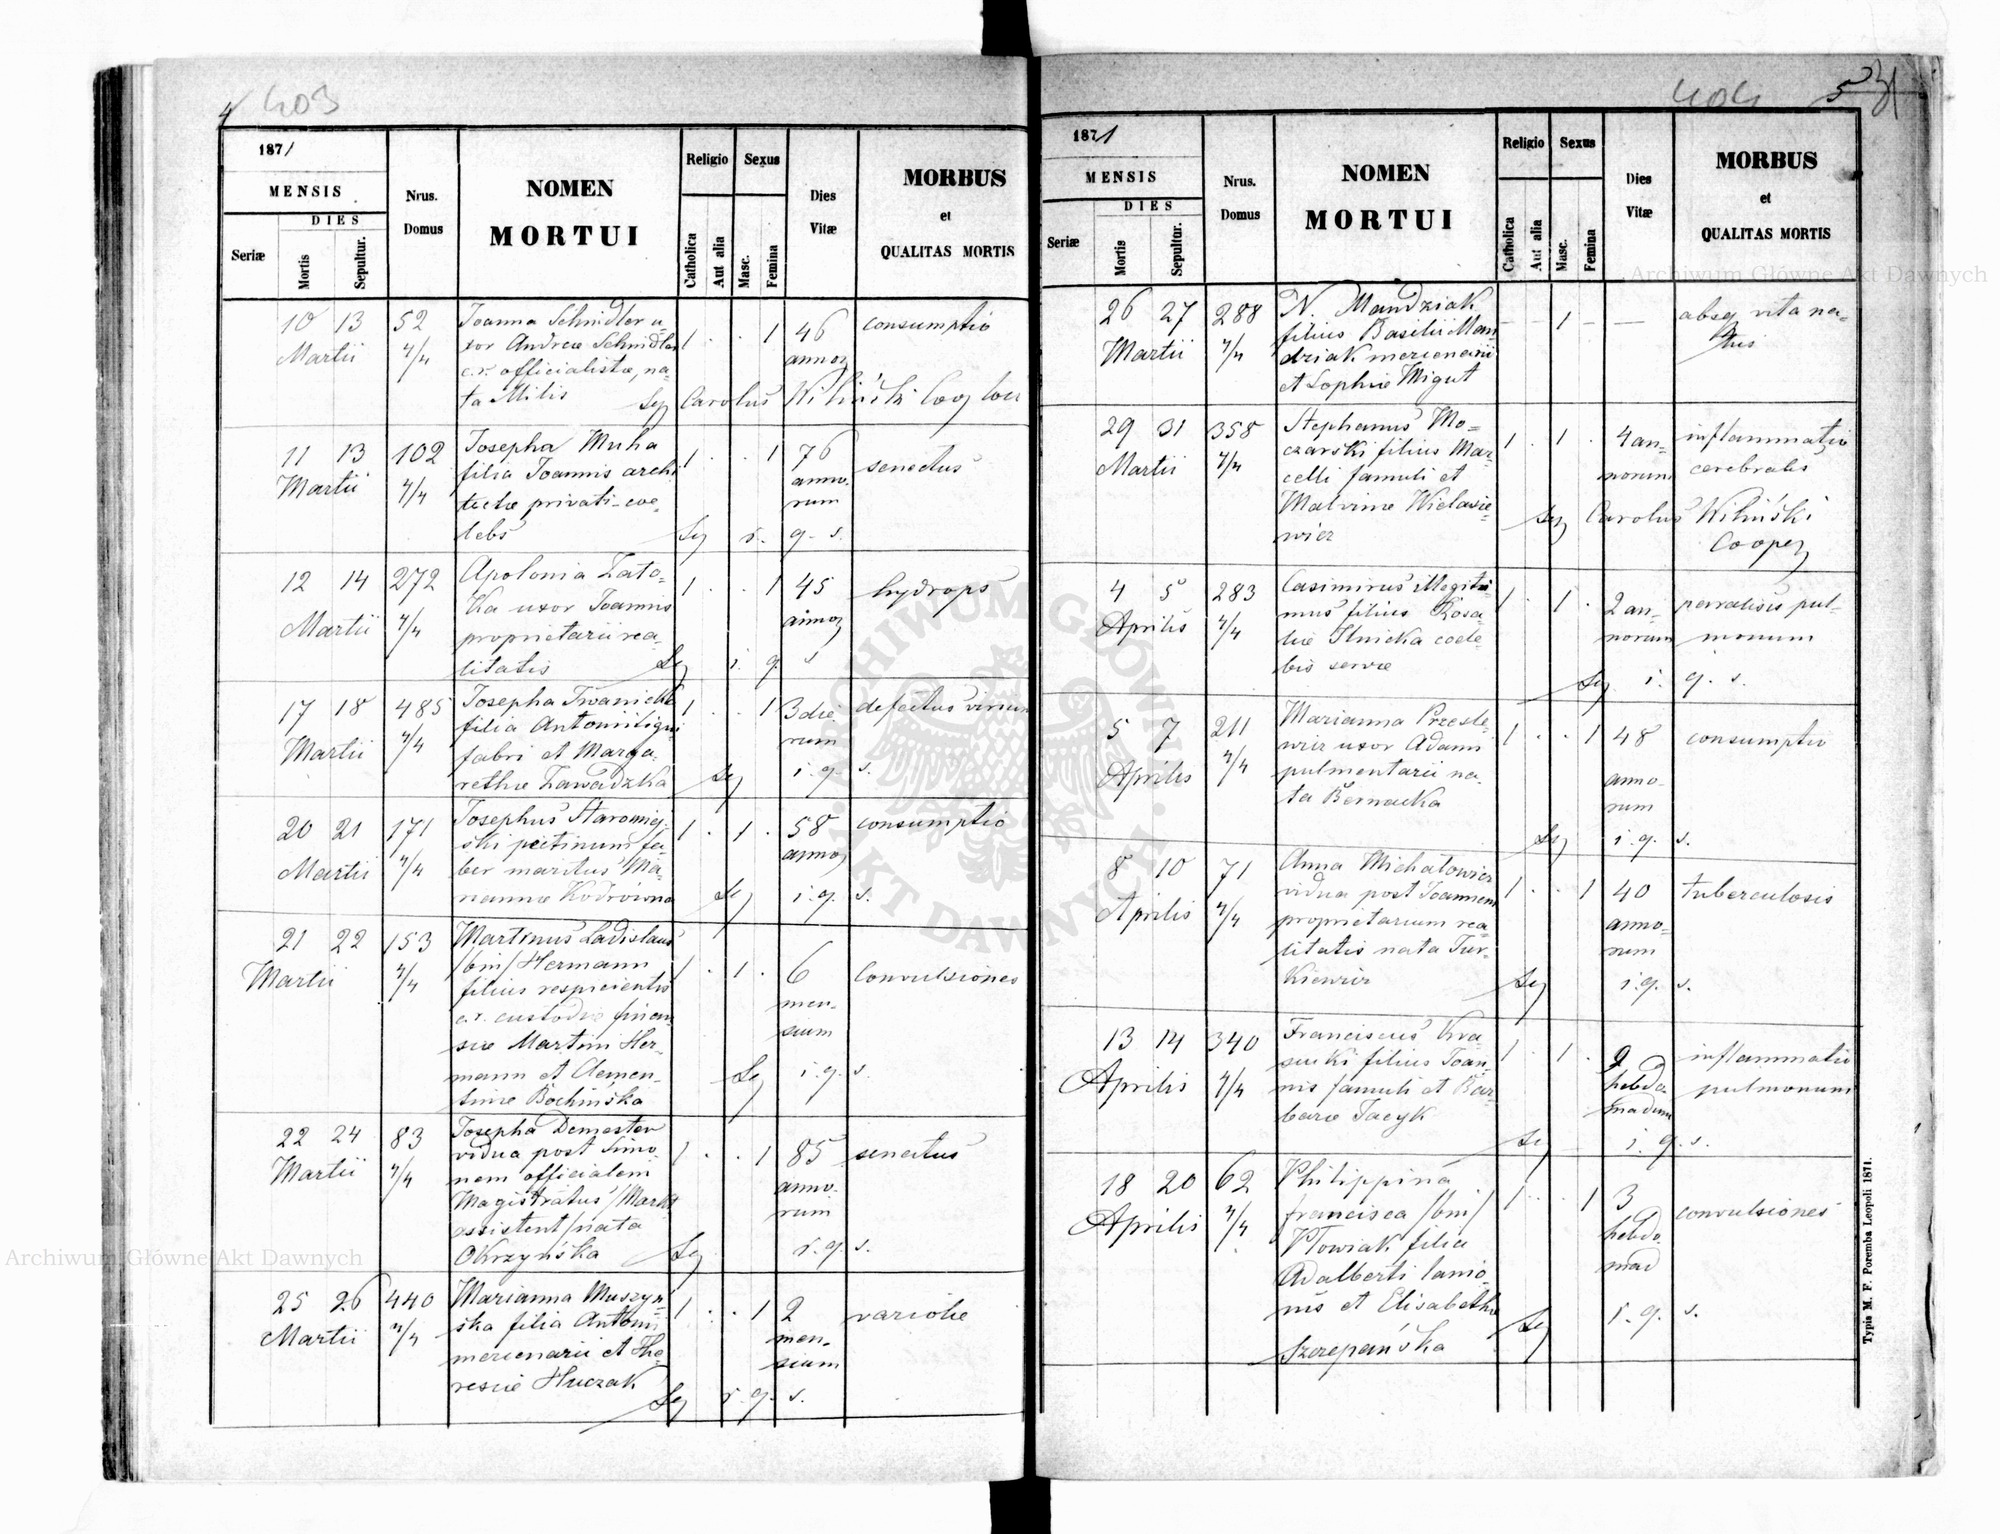 4 403
1871
MENSIS
DIES
Seriæ
Mortis
Sepultur.
Nrus.
Domus
NOMEN
MORTUI
Religio
Catholica
Aut alia
Sexus
Masc.
Femina
Dies
Vitæ
MORBUS
et
QUALITAS MORTIS
10 13 52
Martii
Joanna Schnidler u-
xor Andreæ Schnidler
c.r. officialistæ, na-
ta Milis
1 . . 1 46
annor
consumptio
Carolus Wiliński Coop
11 13 102
Martii
Josepha Muha
filia Joannis archi
tectæ privati - coe-
lebs
1 . . 1 76
anno-
rum
senectus
r. q. s.
12 14 272
Martii
Apolonia Zato-
ka uxor Joannis
proprietarii rea-
litatis
1 . . 1 45
annor
hydrops
r. q. s
17 18 485
Martii
Josepha Iwanicka
filia Antonii ligni
fabri et Marga-
rethæ Zawadzka
1 . . 1 3 die
rum
defectus virium
r. q. s.
20 21 171
Martii
Josephus Staromiej-
ski pectinum fa-
ber maritus Ma-
riannæ Kodrówna
1 . 1 . 58
annor
consumptio
r. q. s.
21 22 153
Martii
Martinus Ladislaus
/bin/ Hermann
filius respicientis
c.r. custodiæ finan-
siæ Martini Her-
mann et Clemen-
tinæ Bochińska
1 . 1 . 6
men-
sium
Convulsiones
r. q. s.
22 24 83
Martii
Josepha Demester
vidua post Simo-
nem officialem
Magistratus /Markt
assistent/ nata
Okrzyńska
1 . . 1 85
anno-
rum
senectus
r. q. s.
25 26 440
Martii
Marianna Muszyń-
ska filia Antonii
mercenarii et The-
resiæ Huczak
1 . . 1 2
men-
sium
variolæ
r. q. s.
404 5
1871
MENSIS
DIES
Seriæ
Mortis
Sepultur.
Nrus.
Domus
NOMEN
MORTUI
Religio
Catholica
Aut alia
Sexus
Masc.
Femina
Dies
Vitæ
MORBUS
et
QUALITAS MORTIS
26 27 288
Martii
N. Mandziak
filius Basilii Man
dziak mercenarii
et Sophiæ Migut
— 1 — —
absq vita na-
tus
29 31 358
Martii
Stephanus Mo-
czarski filius Mar-
celli famuli et
Malvinæ Wielawie-
wicz
1 . 1 . 4 an-
norum
inflammatio
cerebralis
Carolus Wiliński
Cooper
4 5 283
Aprilis
Casimirus illegiti-
mus filius Rosa-
liæ Ilnicka coele-
bis servæ
1 . 1 . 2 an-
norum
paralisis pul-
monum
r. q. s.
5 7 211
Aprilis
Marianna Przesle-
wicz uxor Adami
pulmentarii na-
ta Bernacka
1 . . 1 48
anno-
rum
consumptio
r. q. s.
8 10 71
Aprilis
Anna Michałowicz
vidua post Joannem
proprietarium rea-
litatis nata Tur-
kiewicz
1 . . 1 40
anno-
rum
tuberculosis
r. q. s.
13 14 340
Aprilis
Franciscus Kra-
sucki filius Joan-
nis famuli et Bar-
baræ Jacyk
1 . 1 . 2
hebdo
madum
inflammatio
pulmonum
r. q. s.
18 20 62
Aprilis
Philippina
Francisca /bin/
Wtowiak filia
Adalberti lanio-
nis et Elisabethæ
Szczepańska
1 . . 1 3
hebdo-
mad
convulsiones
r. q. s.
Typis M. F. Poremba Leopoli 1871.
Archiwum Główne Akt Dawnych
Archiwum Główne Akt Dawnych
ARCHIWUM GŁÓWNE AKT DAWNYCH